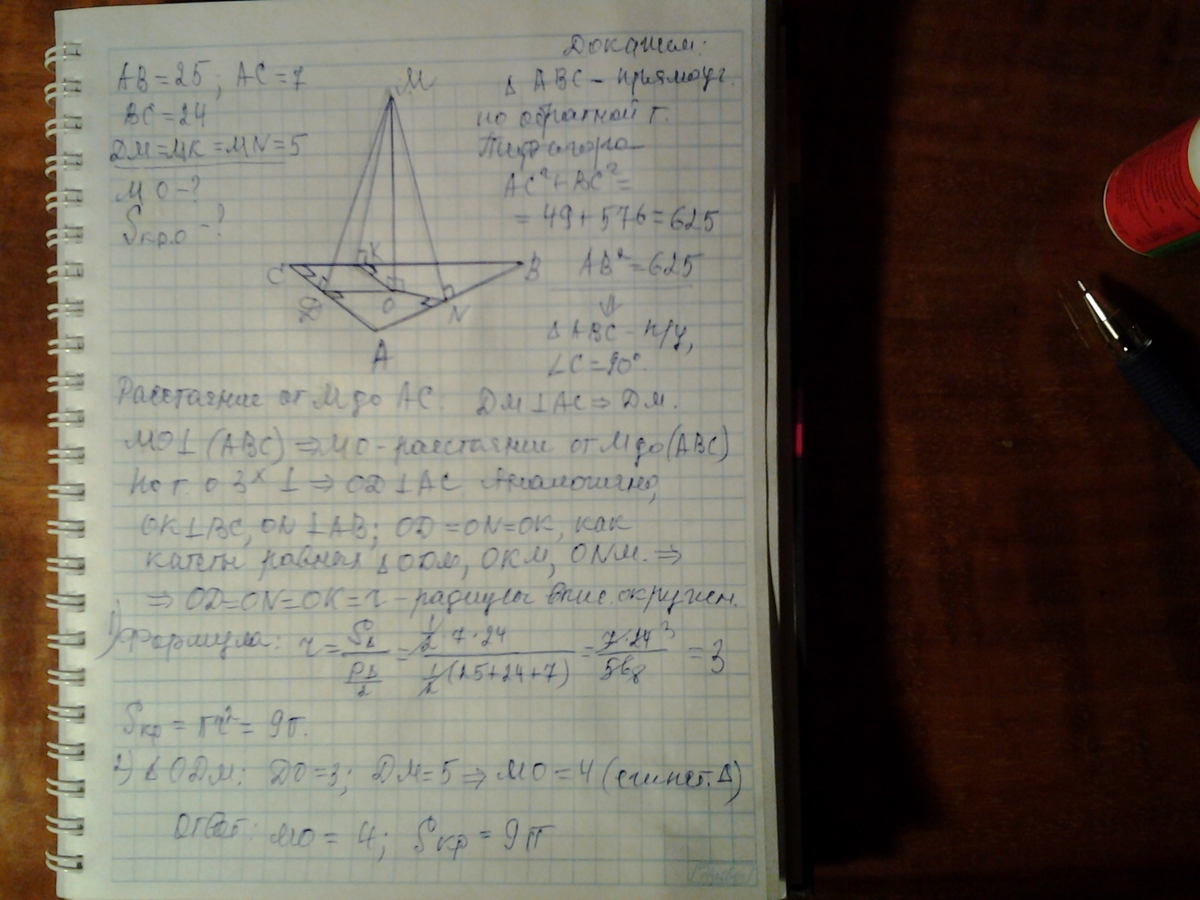 AB = 25; AC = 7
BC = 24
DM = MK = MN = 5
MO - ?
Sкр.о - ?
M
C
K
B
D
O
N
A
Докажем:
△ ABC - прямоуг.
по обратной т.
Пифагора
AC² + BC² =
= 49 + 576 = 625
AB² = 625
⇓
△ ABC - п/у,
∠C = 90°.
Расстояние от M до AC. DM ⊥ AC ⇒ DM.
MO ⊥ (ABC) ⇒ MO - расстояние от M до (ABC)
По т. о 3х ⊥ ⇒ OD ⊥ AC. Аналогично,
OK ⊥ BC, ON ⊥ AB; OD = ON = OK, как
катеты равных △ ODM, OKM, ONM. ⇒
⇒ OD = ON = OK = r - радиусы впис. окружн.
1) Формула: r = S△ / (P△/2) = (1/2 · 7 · 24) / (1/2 (25 + 24 + 7)) = 7 · 24 3 / 56 8 = 3
Sкр = πr² = 9π.
2) △ ODM: DO = 3; DM = 5 ⇒ MO = 4 (египет. △)
Ответ: MO = 4; Sкр = 9π